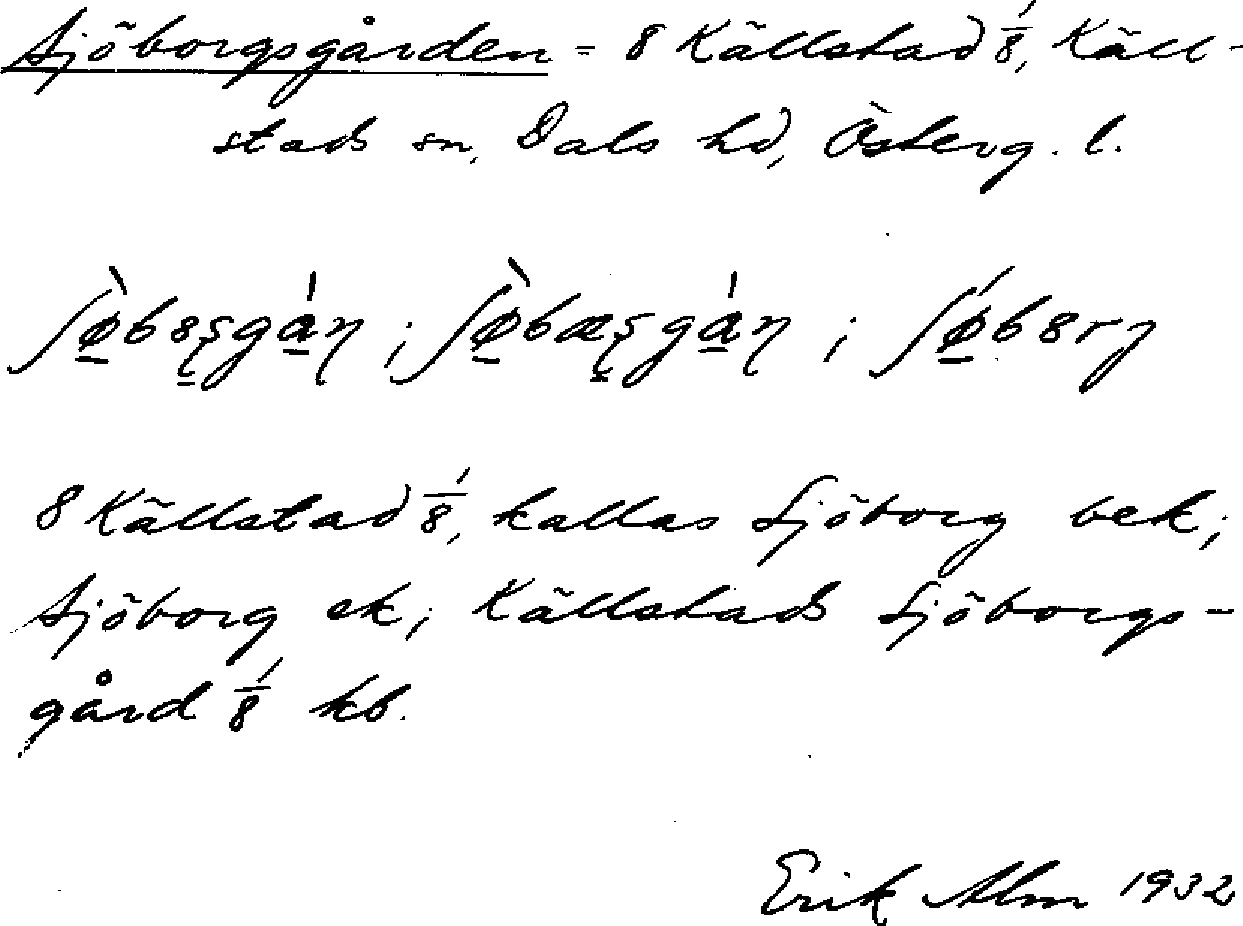 Sjöborgsgården = 8 Källstad 1/8, Käll-
stads sn, Dals hd, Österg. l.
8 Källstad 1/8, kallas Sjöborg bek;
Sjöborg ek; Källstads Sjöborgs-
gård 1/8 kb.
Erik Alm 1932